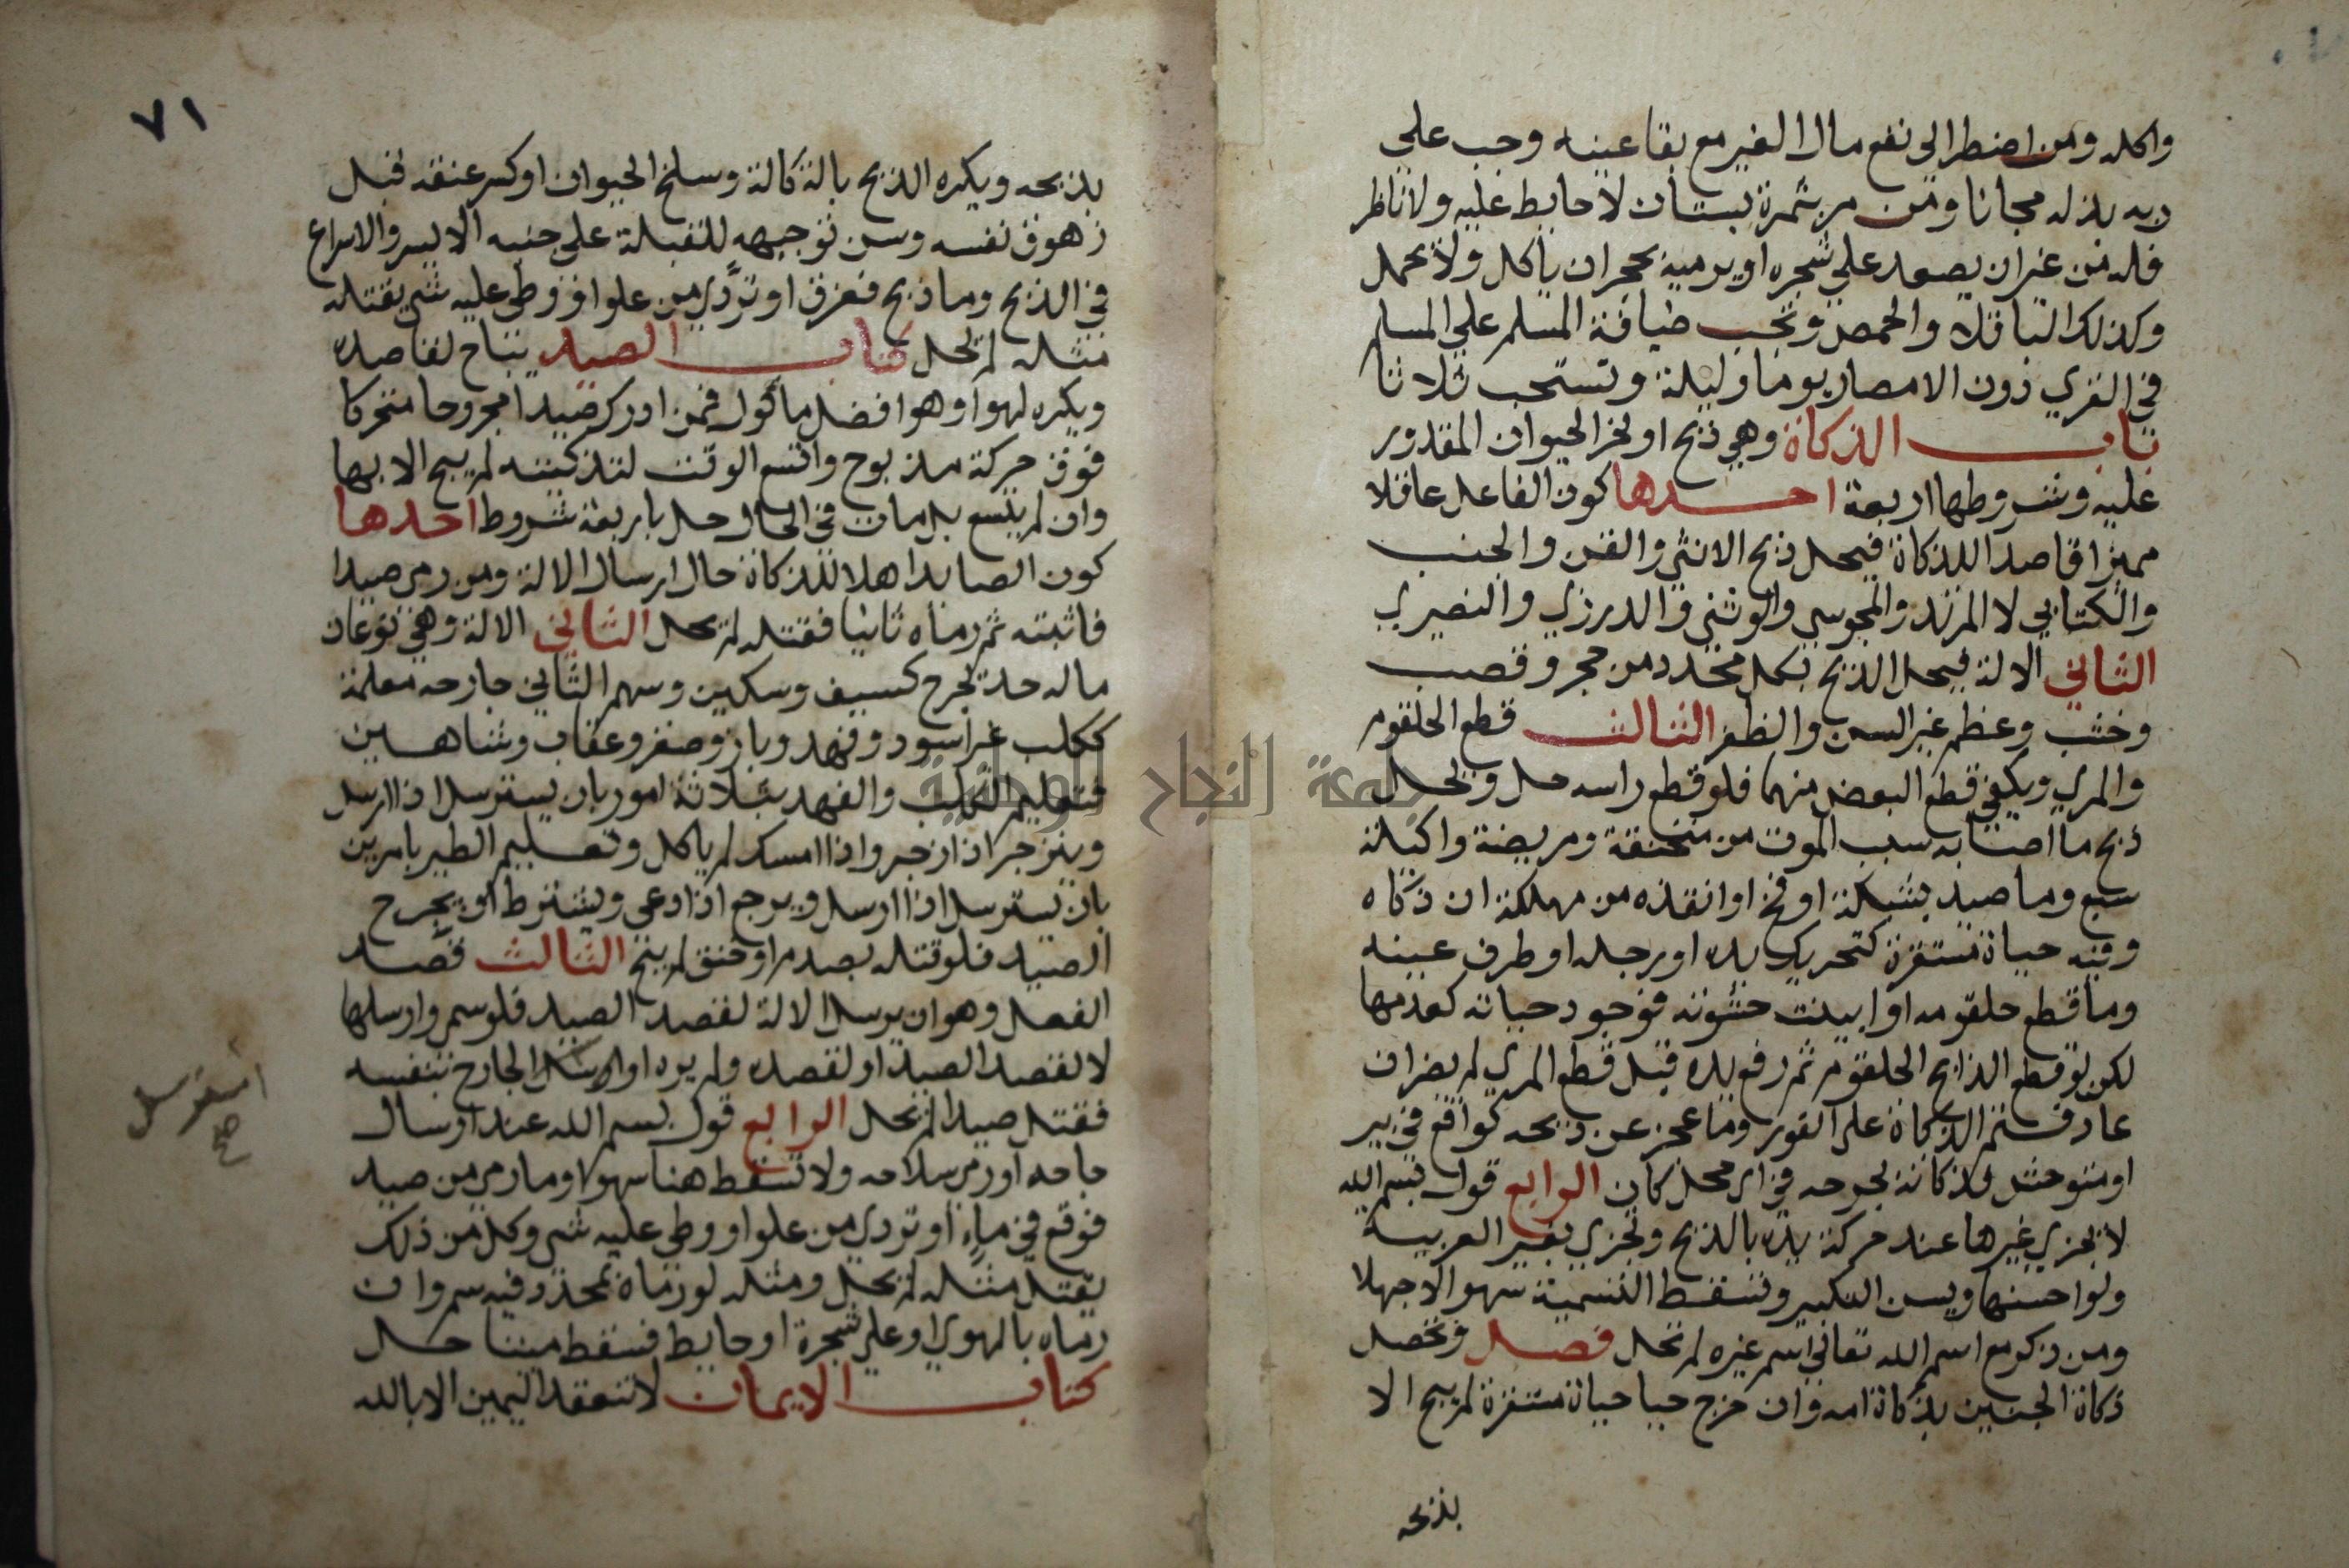 واكله ومن اضطر الى نفع مال الغير مع بقا عينه وجب على
ربه بذله مجانا ومن مر بثمرة بستان لا حايط عليه ولا ناظر
فله من غير ان يصعد على شجره او يرميه بحجر ان ياكل ولا يحمل
وكذلك الباقلا والحمص وتجب ضيافة المسلم على المسلم
في القري دون الامصار يوما وليلة وتستحب ثلاثا
باب الذكاة وهي ذبح او نحر الحيوان المقدور
عليه وشروطها اربعة احدها كون الفاعل عاقلا
مميزا قاصدا للذكاة فيحل ذبح الانثي والقن والجنب
والكتابي لا المرتد والمجوسي والوثني والدرزي والنصيري
الثاني الالة فيحل الذبح بكل محدد من حجر وقصب
وخشب وعظم غير السن والظفر الثالث قطع الحلقوم
والمري ويكفي قطع البعض منهما فلو قطع راسه حل ويحل
ذبح ما اصابه سبب الموت من منخنقة ومريضة واكيلة
سبع وما صيد بشبكة او فخ او انقذه من مهلكة ان ذكاه
وفيه حياة مستقرة كتحريك يده او رجله او طرف عينه
وما قطع حلقومه او ابينت حشوته فوجود حياته كعدمها
لكن لو قطع الذابح الحلقوم ثم رفع يده قبل قطع المري لم يضر ان
عاد فتمم الذكاة على الفور وما عجز عن ذبحه كواقع في بير
او متوحش فذكاته بجرحه في اي محل كان الرابع قول بسم الله
لا يجزي غيرها عند حركة يده بالذبح وتجزي بغير العربية
ولو احسنها ويسن التكبير وتسقط التسمية سهوا لا جهلا
ومن ذكر مع اسم الله تعالي اسم غيره لم تحل فصل وتحصل
ذكاة الجنين بذكاة امه وان خرج حيا حياة مستقرة لم يبح الا
بذبحه
٧١
بذبحه ويكره الذبح بالة كالة وسلخ الحيوان او كسر عنقه قبل
زهوق نفسه وسن توجيهه للقبلة على جنبه الايسر والاسراع
في الذبح وما ذبح فغرق او تردّى من علو او وطى عليه شي يقتله
مثله لم يحل كتاب الصيد يباح لقاصده
ويكره لهوا وهو افضل ماكول فمن ادرك صيدا مجروحا متحركا
فوق حركة مذبوح واتسع الوقت لتذكيته لم يبح الا بها
وان لم يتسع بل مات في الحال حل باربعة شروط احدها
كون الصايد اهلا للذكاة حال ارسال الالة ومن رمى صيدا
فاثبته ثم رماه ثانيا فقتله لم يحل الثاني الالة وهي نوعان
ما له حد يجرح كسيف وسكين وسهم الثاني جارحه معلمة
ككلب غير اسود وفهد وباز وصقر وعقاب وشاهين
فتعليم الكلب والفهد بثلاثة امور بان يسترسل اذا ارسل
وينزجر اذا زجر واذا امسك لم ياكل وتعليم الطير بامرين
بان يسترسل اذا ارسل ويرجع اذا دعى ويشترط ان يجرح
الصيد فلو قتله بصدم او خنق لم يبح الثالث قصد
الفعل وهو ان يرسل الالة لقصد الصيد فلو سمى وارسلها
لا لقصد الصيد او لقصده ولم يره او الجارح بنفسه
استرسل صح
فقتل صيدا لم يحل الرابع قول بسم الله عند ارسال
جارحه او رمى سلاحه ولا تسقط هنا سهوا وما رمى من صيد
فوقع في ماء او تردي من علو او وطى عليه شي وكل من ذلك
يقتل مثله لم يحل ومثله لو رماه بمحدد فيه سم وان
رماه بالهوي او على شجرة او حايط فسقط ميتا حل
كتاب الايمان لا تنعقد اليمين الا بالله
جامعة النجاح الوطنية